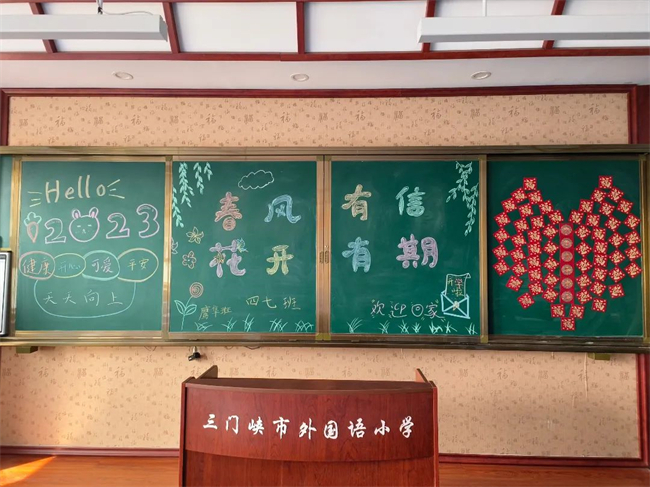 Hello
2023
健康 开心 可爱 平安
天天向上
春风
花开
四七班
有信
有期
开学啦
欢迎回家
三门峡市外国语小学